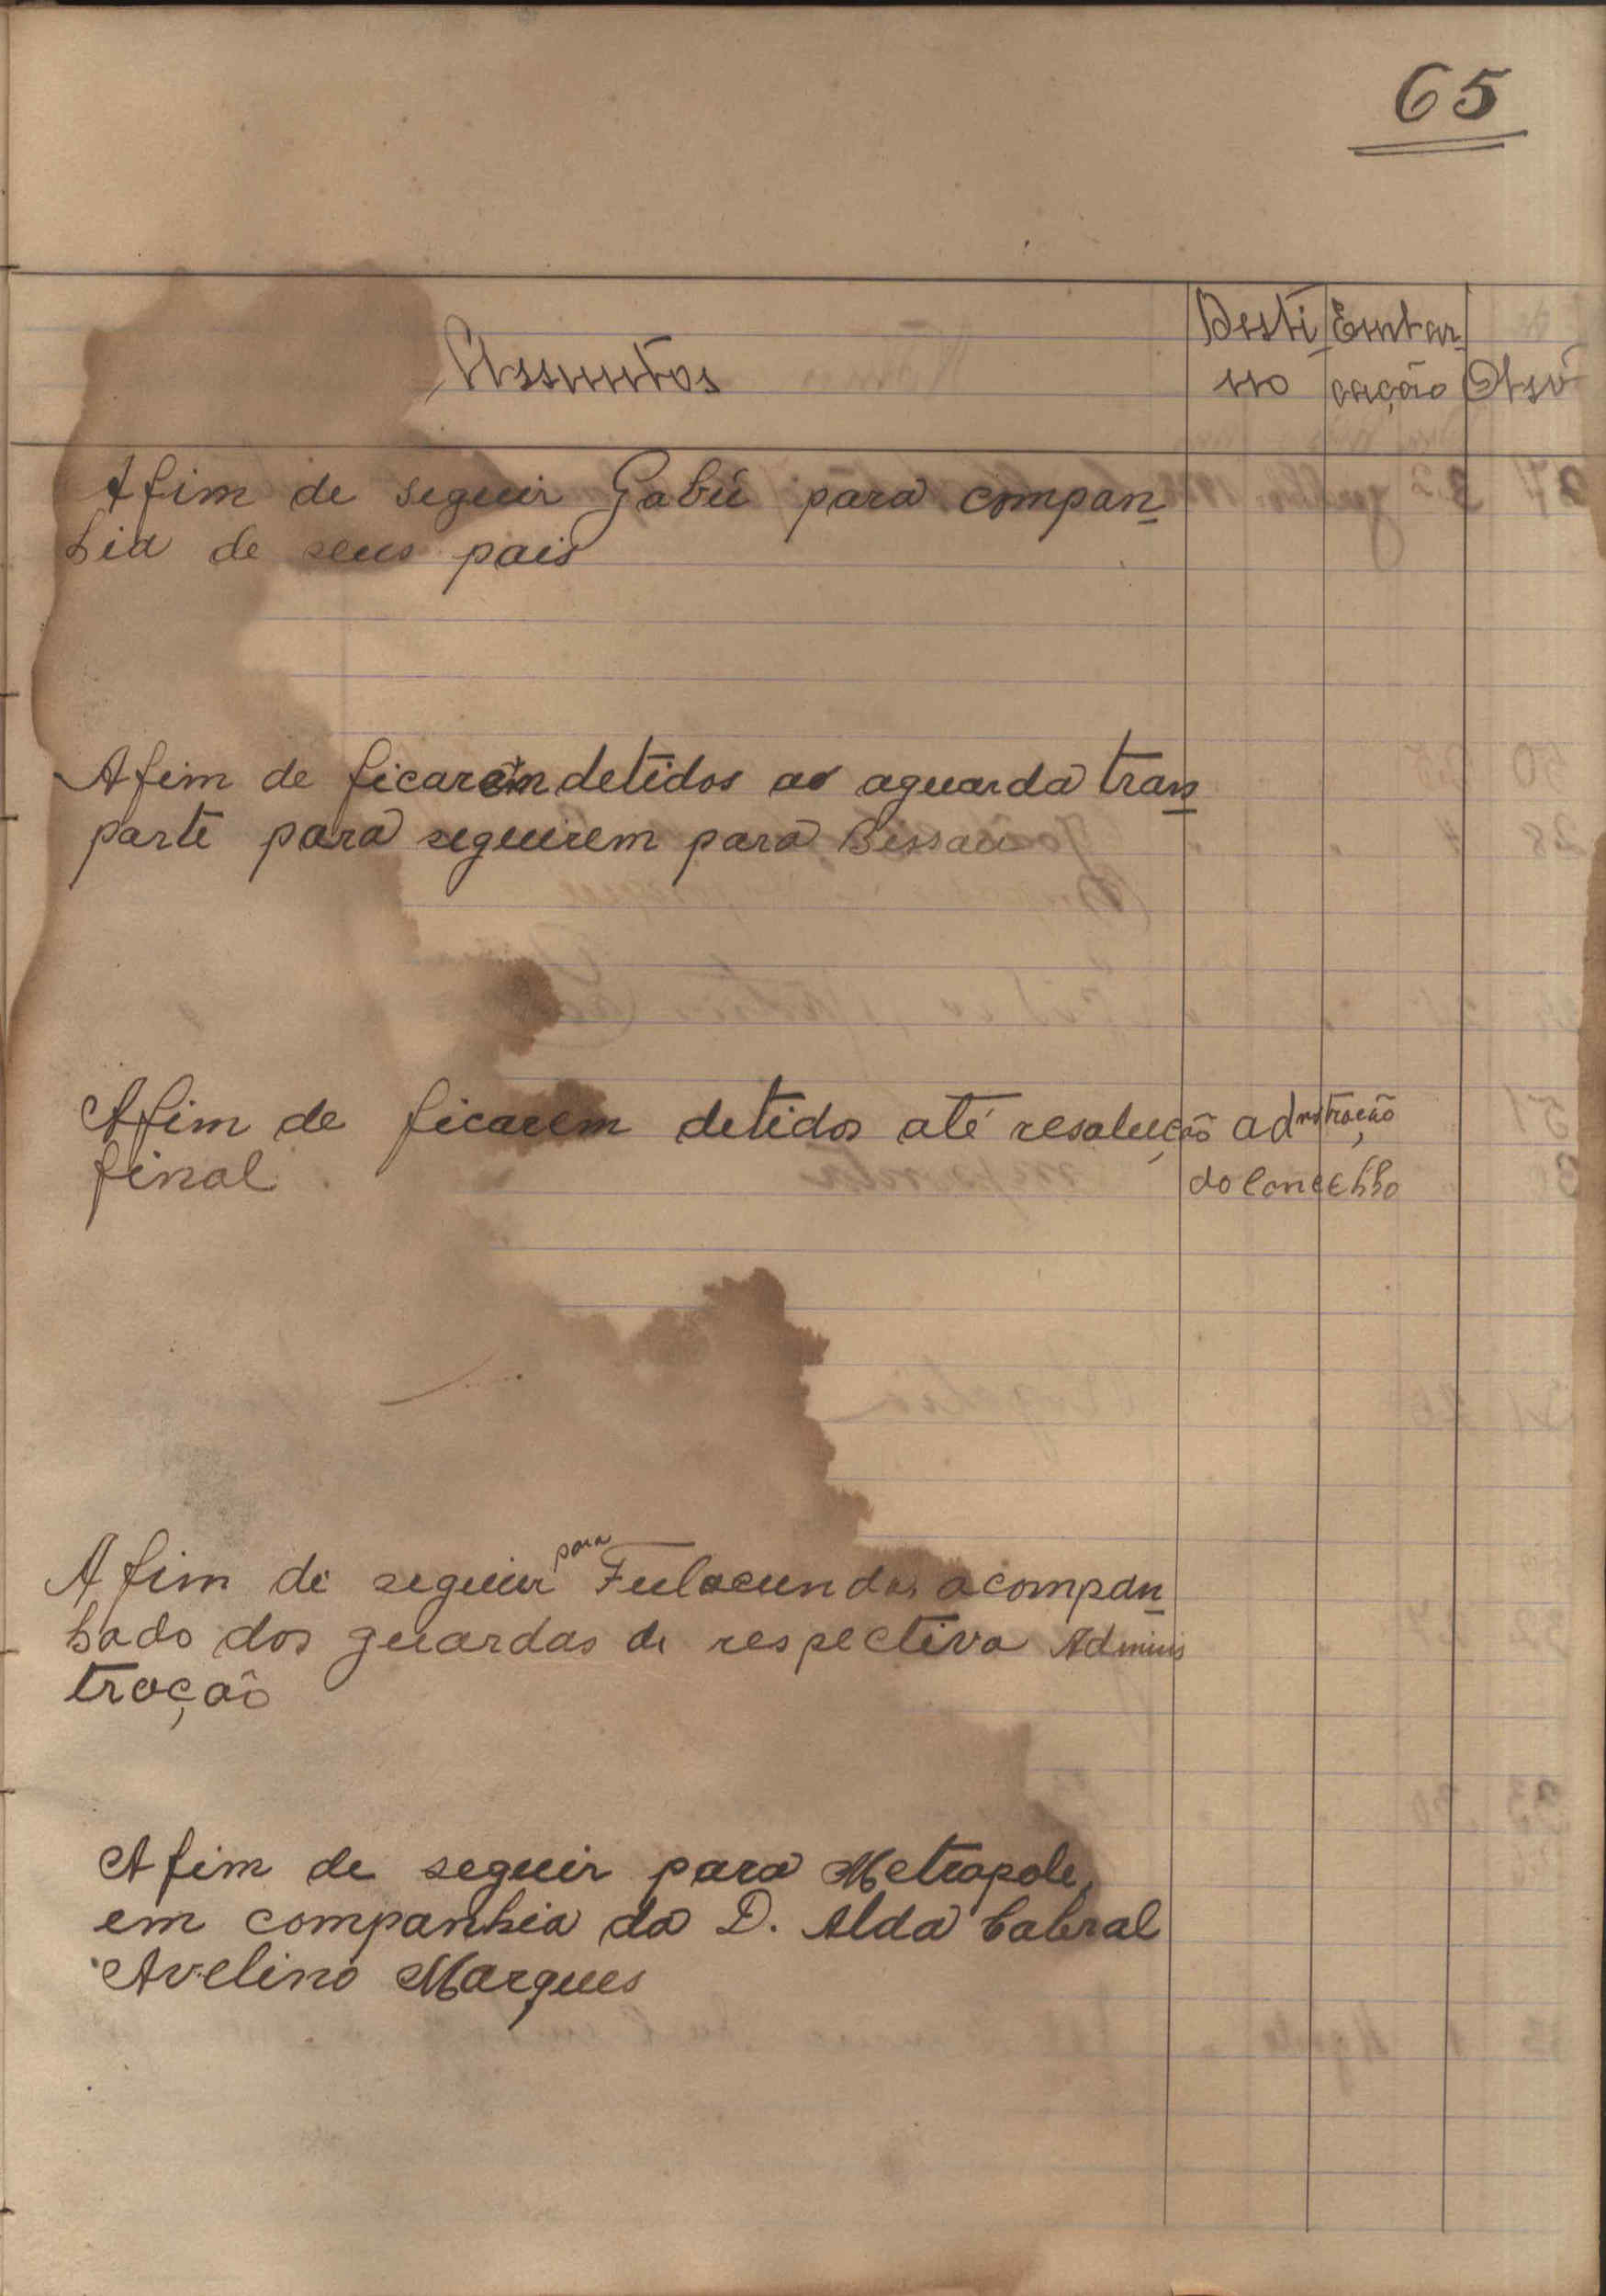 65
Assuntos
Desti-
no
Embar-
cação
Obsv
Afim de seguir Gabú para compan-
hia de seus pais
Afim de ficarem detidos ao aguarda trans-
parte para seguirem para Bissau
Afim de ficarem detidos até resolução
final
admtração
do Concelho
Afim de seguir para Fulacunda, acompan-
hado dos guardas da respectiva Adminis
tração
Afim de seguir para Metropole,
em companhia da D. Alda Cabral
Avelino Marques